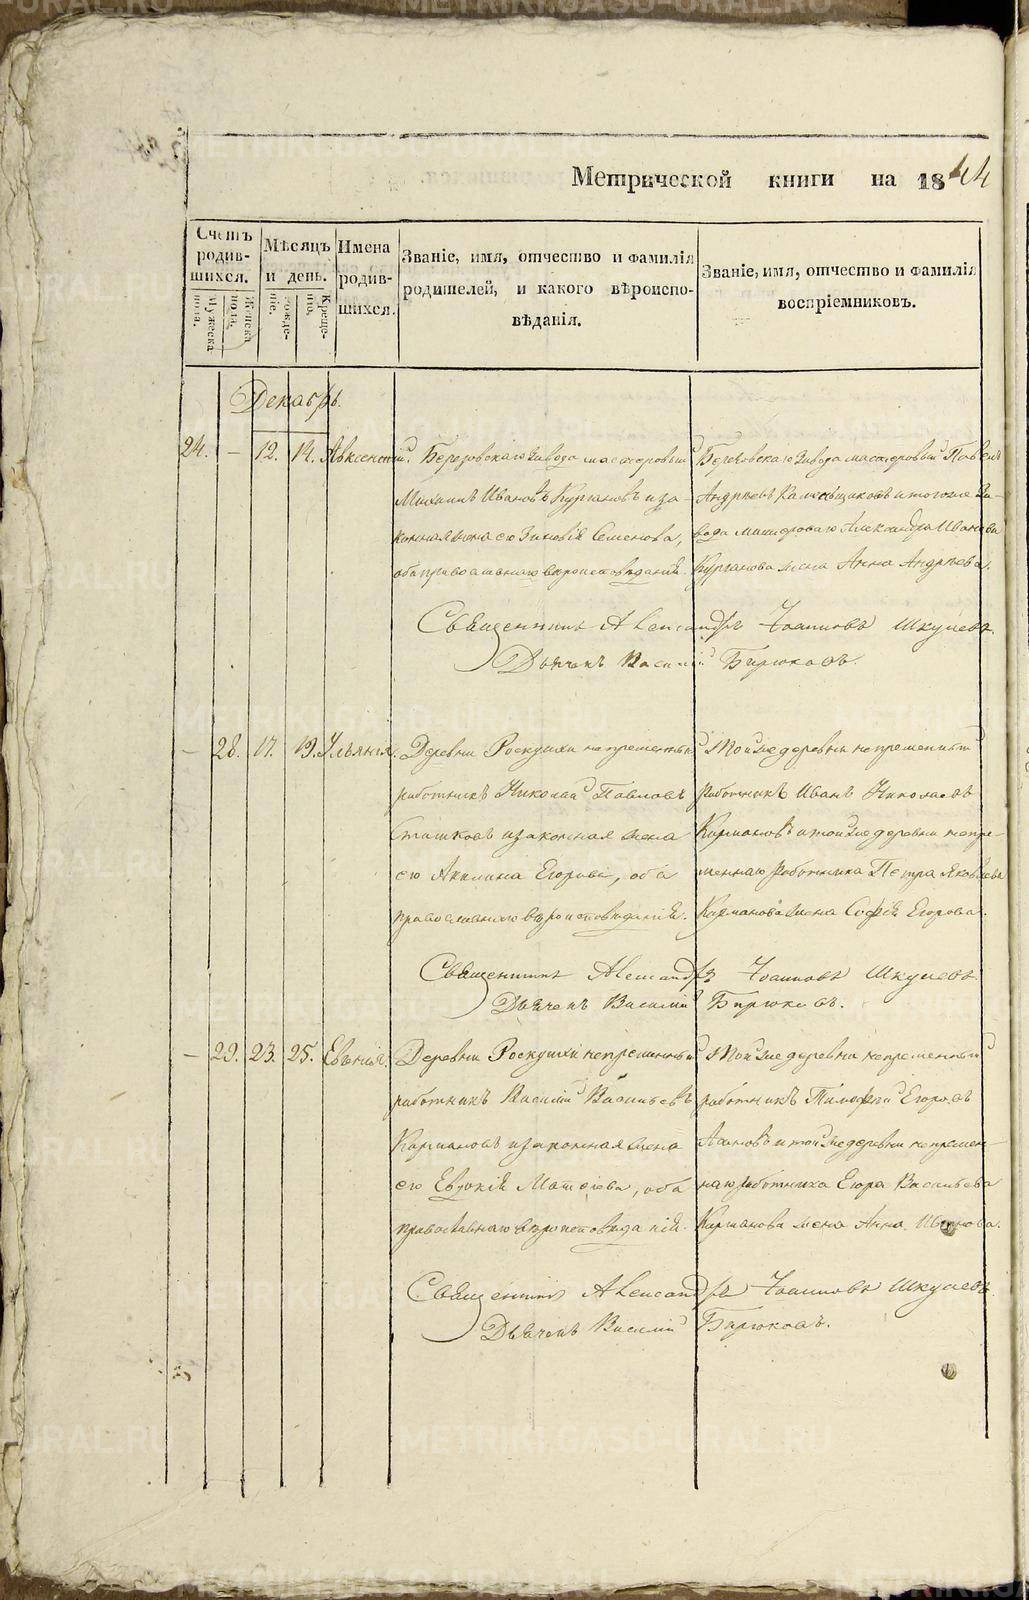 Метрической книги на 1844
Счетъ родив-шихся.
Мужеска пола.
Женска пола.
Мѣсяцъ и день.
Рожде-ніе.
Креще-ніе.
Имена родив-шихся.
Званіе, имя, отчество и фамилія
родителей, и какого вѣроиспо-
вѣданія.
Званіе, имя, отчество и фамилія
воспріемниковъ.
Декабрь.
24. — 12. 14. Авксентій.
Березовскаго завода мастеровый
Михаилъ Ивановъ Кургановъ и за-
конная жена его Зиновія Семенова,
оба православнаго вѣроисповѣданія.
Березовскаго завода мастеровый Павелъ
Андреевъ и тогоже за-
вода мастероваго Александра Иванова
Курганова жена Анна Андреева.
Священникъ Александръ Іоанновъ
Дьячекъ Василій Бирюковъ.
— 28. 17. 19. Ульянія.
Деревни непремѣнный
работникъ Николай Павловъ
Сташковъ и законная жена
его Акилина Егорова, оба
православнаго вѣроисповѣданія.
Той же деревни непремѣнный
работникъ Иванъ Николаевъ
Кармановъ и той же деревни непре-
меннаго работника Петра Яковлева
Карманова жена Софія Егорова.
Священникъ Александръ Іоанновъ
Дьячекъ Василій Бирюковъ.
— 29. 23. 25. Евгенія.
Деревни непремѣнный
работникъ Василій Васильевъ
Кармановъ и законная жена
его Евдокія Матѳеева, оба
православнаго вѣроисповѣданія.
Той же деревни непремѣнный
работникъ Тимофей Егоровъ
и той же деревни непремен-
наго работника Егора Васильева
Карманова жена Анна Иванова.
Священникъ Александръ Іоанновъ
Дьячекъ Василій Бирюковъ.
METRIKI.GASO-URAL.RU